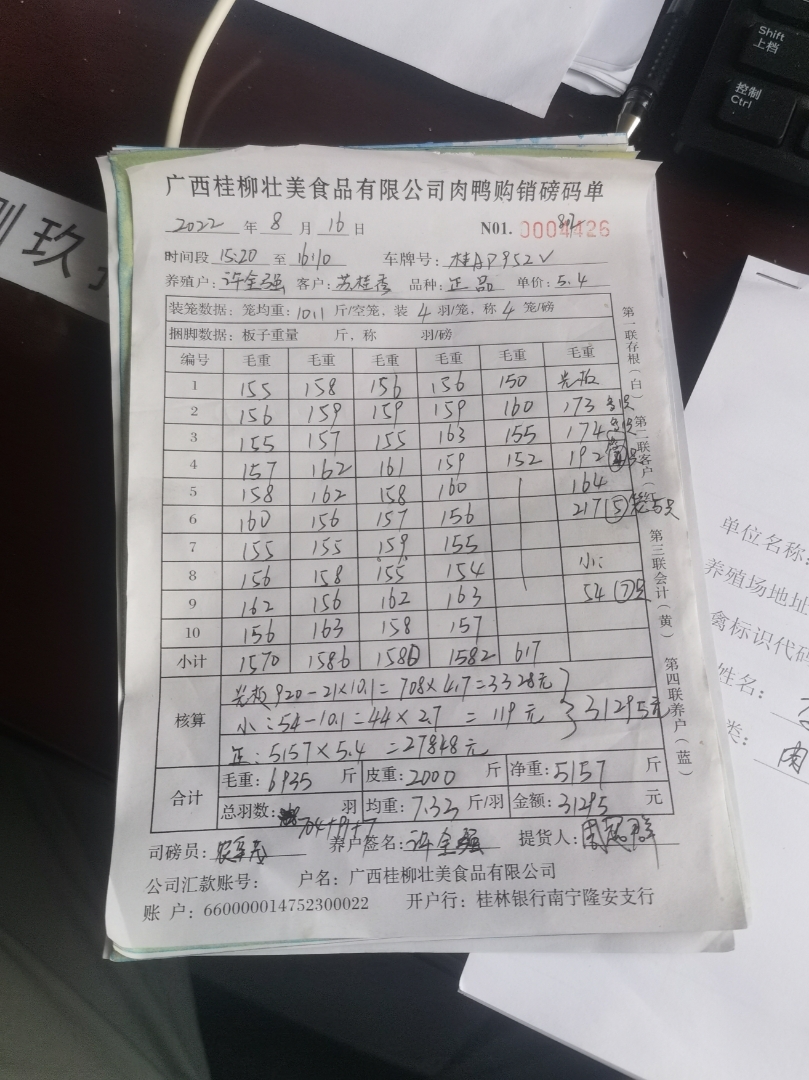 Shift
上档
控制
Ctrl
玖
广西桂柳壮美食品有限公司肉鸭购销磅码单
2022 年 8 月 16 日 N01. 0004426
时间段 15:20 至 16:10 车牌号: 桂AP952V
养殖户: 许全强 客户: 苏桂秀 品种: 正品 单价: 5.4
装笼数据: 笼均重: 10.1 斤/空笼, 装 4 羽/笼, 称 4 笼/磅
捆脚数据: 板子重量 斤, 称 羽/磅
编号 毛重 毛重 毛重 毛重 毛重 毛重
1 155 158 156 156 150 光板
2 156 159 159 159 160 173
3 155 157 155 163 155 174
4 157 162 161 159 152 192
5 158 162 158 160 164
6 160 156 157 156 217 ⑤
7 155 155 159 155
8 156 158 155 154 小:
9 162 156 162 163 54 ⑦只
10 156 163 158 157
小计 1570 1586 1580 1582 617
核算 光板 920-21×10.1=708×4.7=3328元
小:54-10.1=44×2.7=119元 31295元
正:5157×5.4=27848元
合计 毛重: 6935 斤 皮重: 2000 斤 净重: 5157 斤
总羽数: 704+91+7 羽 均重: 7.33 斤/羽 金额: 31295 元
司磅员: 养户签名: 许全强 提货人:
公司汇款账号: 户名: 广西桂柳壮美食品有限公司
账 户: 660000014752300022 开户行: 桂林银行南宁隆安支行
第一联存根(白) 第二联客户(红) 第三联会计(黄) 第四联养户(蓝)
单位名称:
养殖场地址
禽标识代码
姓名:
类: 肉